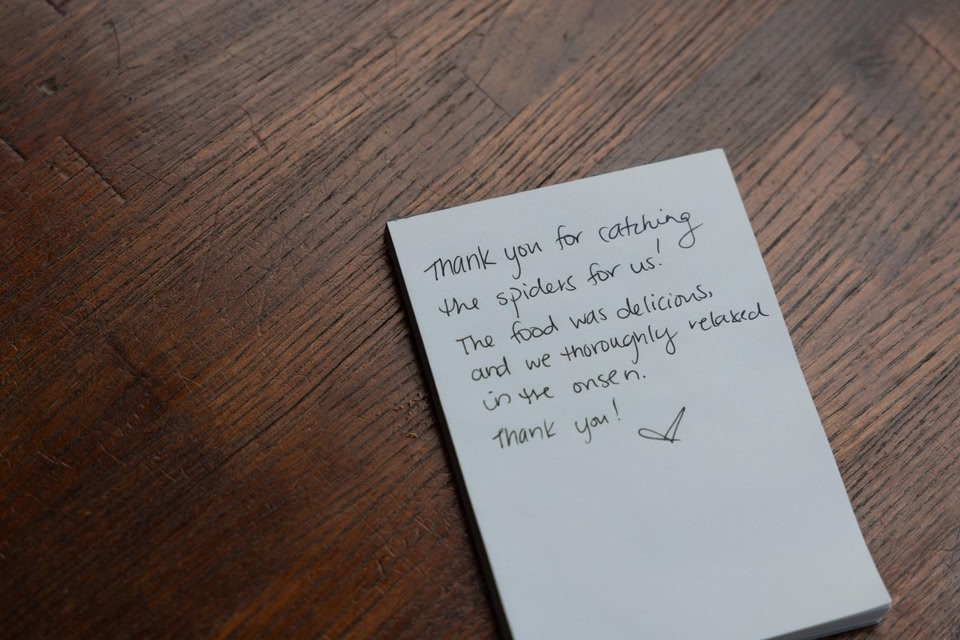 Thank you for catching
the spiders for us!
The food was delicious,
and we thoroughly relaxed
in the onsen.
Thank you!